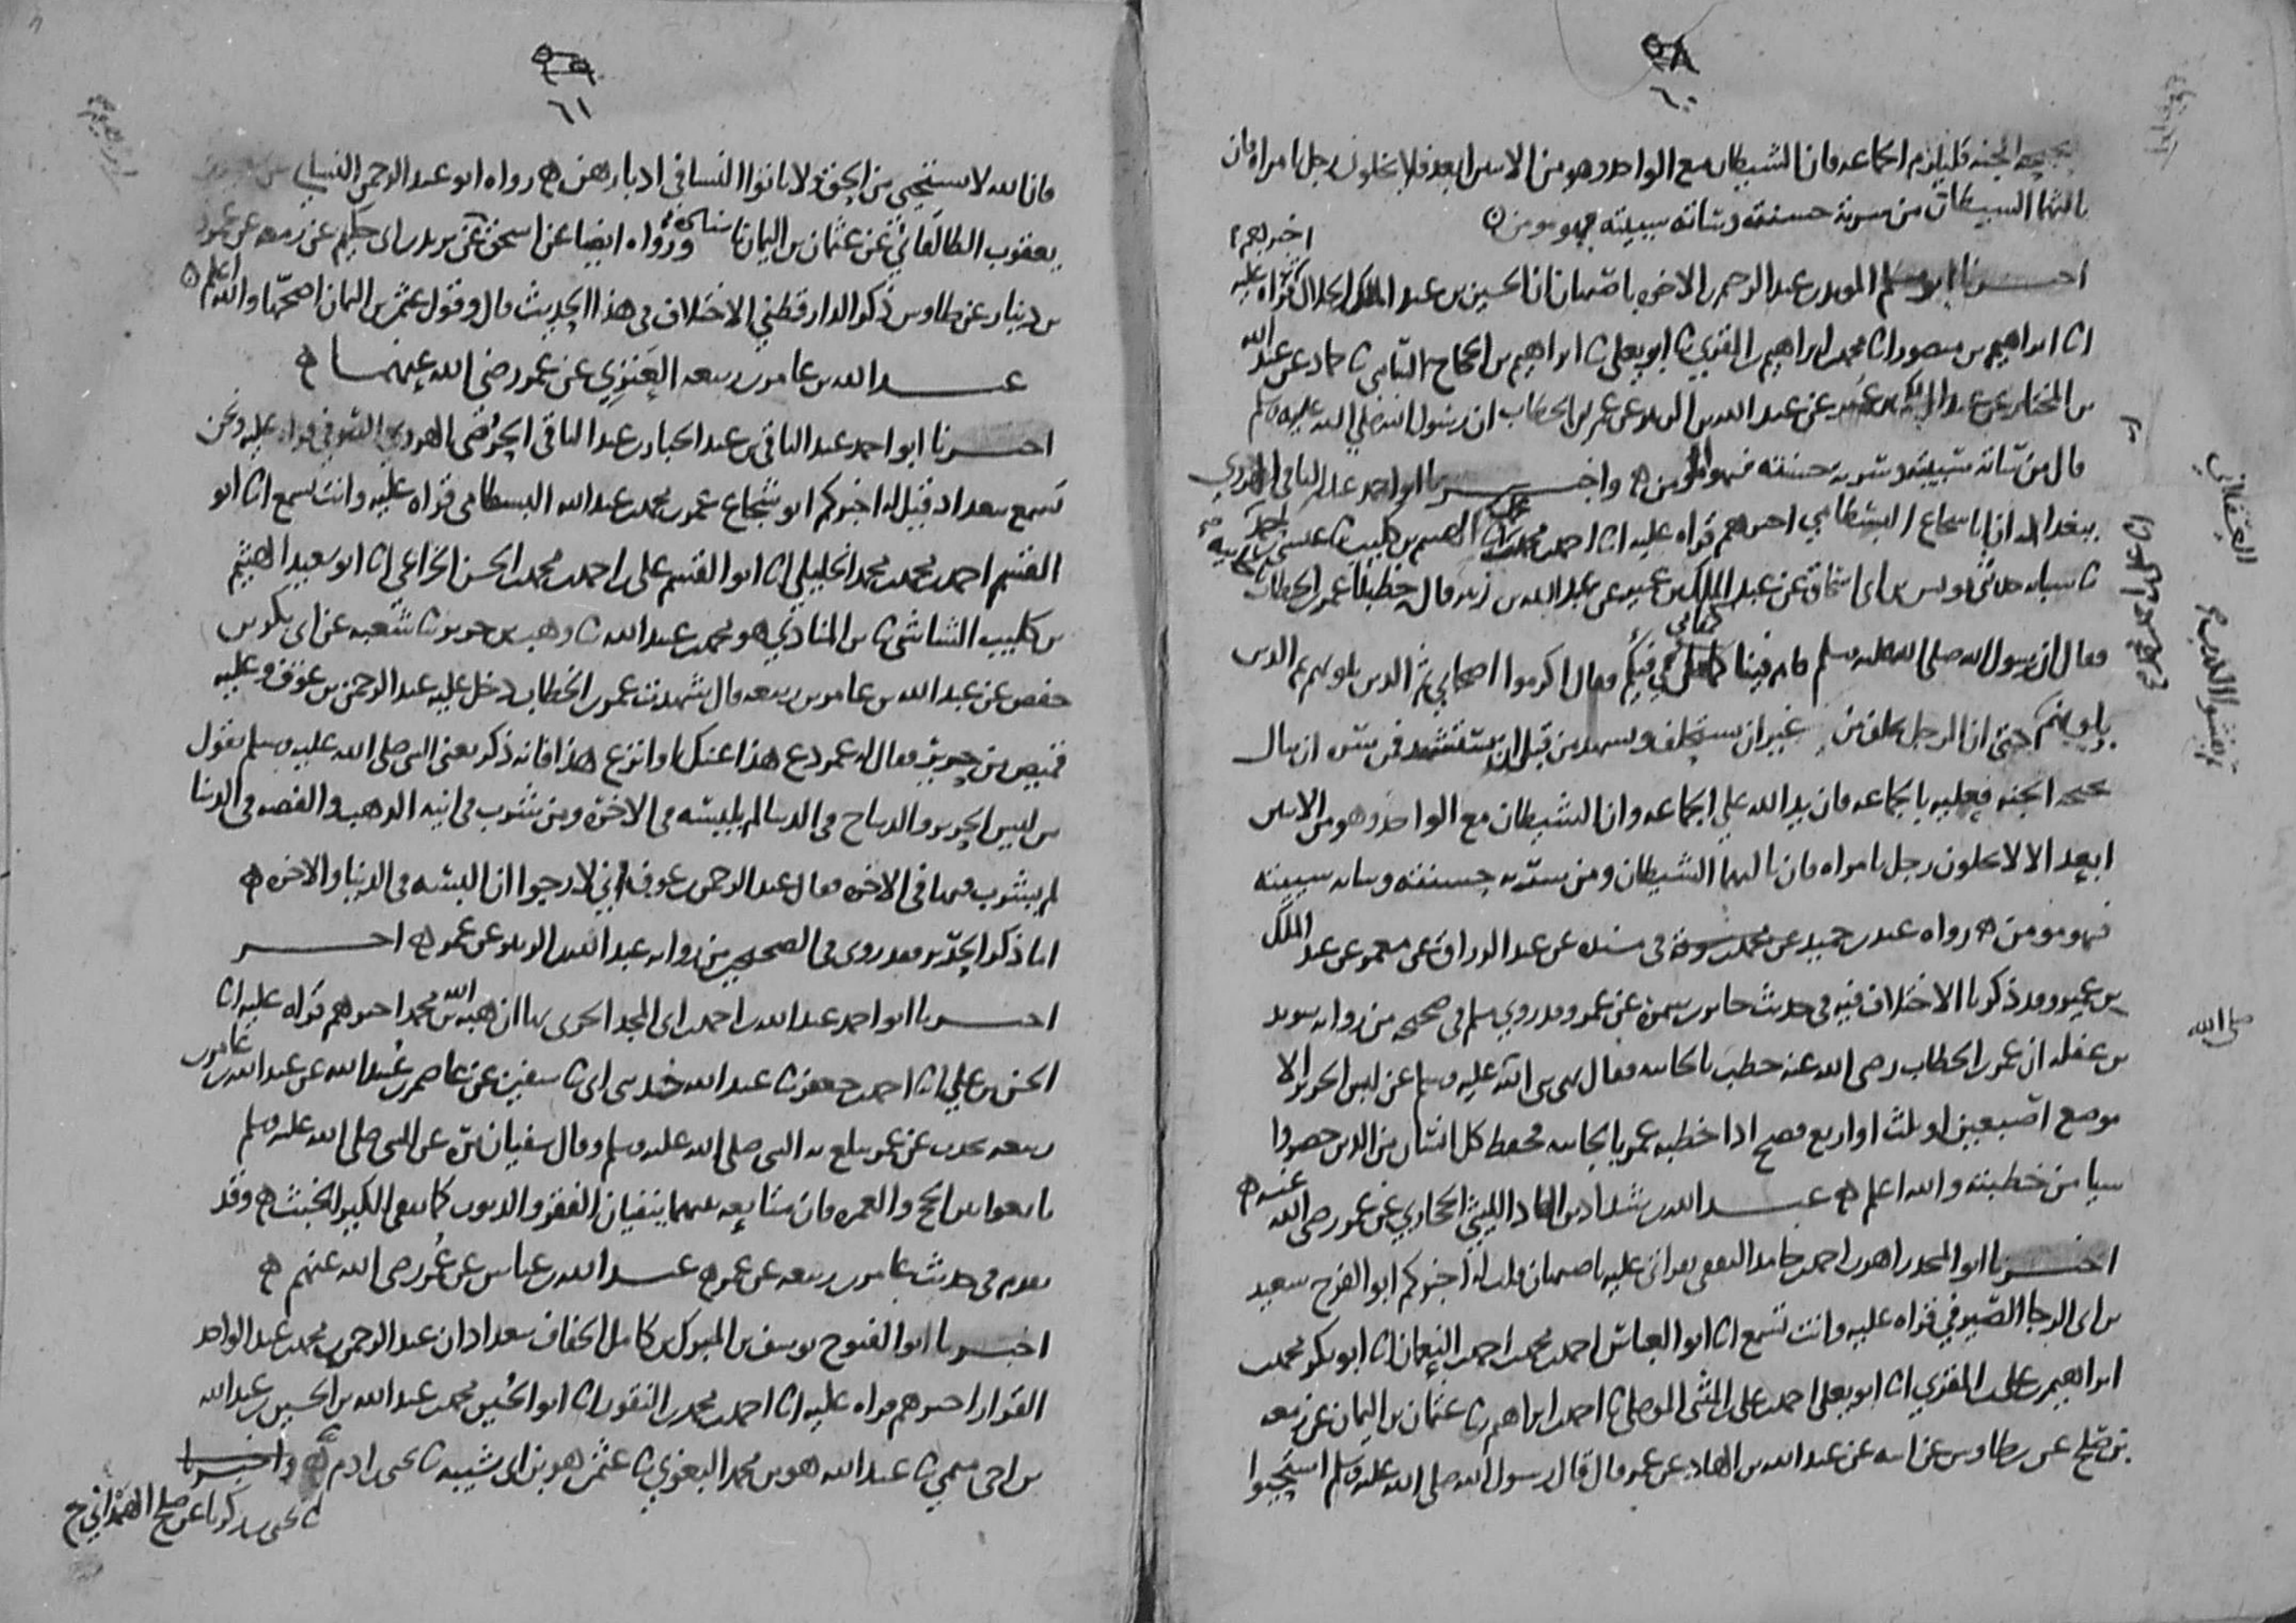 ٥٨
٦٠
الجنه فليلزم الجماعه فان الشيطان مع الواحد وهو من الاثنين ابعد فلا يخلون رجل بامراه فان
ثالثهما الشيطان من سرته حسنته وساته سييته فهو مومن
اخبرنا ابو مسلم المويد بن عبد الرحيم بن الاخوه باصبهان ان الحسين بن عبد الملك الخلال اخبرهم قراه عليه
انا ابراهيم بن منصور انا محمد بن ابراهيم بن المقري انا ابو يعلى ثنا ابراهيم بن الحجاج النامي ثنا حماد عن عبد الله
بن المختار عن عبد الملك بن عمير عن عبد الله بن الزبير عن عمر بن الخطاب ان رسول الله صلى الله عليه وسلم
قال من ساته سييته وسرته حسنته فهو مومن واخبرنا ابو احمد عبد الباقي الهروي
ببغداد ان ابا شجاع البسطامي اخبرهم قراه عليه انا احمد بن محمد الهيثم بن كليب ثنا عيسى بن احمد
ثنا شبابه حدثني يونس بن ابي اسحاق عن عبد الملك بن عمير عن عبد الله بن الزبير قال خطبنا عمر بن الخطاب بالجابيه
فقال ان رسول الله صلى الله عليه وسلم قام فينا كمقامي فيكم فقال اكرموا اصحابي ثم الذين يلونهم ثم الذين
يلونهم حتى ان الرجل يحلف من غير ان يستحلف ويشهد من قبل ان يستشهد فمن سره ان ينال
بحبحه الجنه فعليه بالجماعه فان يد الله على الجماعه وان الشيطان مع الواحد وهو من الاثنين
ابعد الا لا يخلون رجل بامراه فان ثالثهما الشيطان ومن سرته حسنته وساته سييته
فهو مومن رواه عبد بن حميد في مسنده عن عبد الرزاق عن معمر عن عبد الملك
بن عمير وقد ذكرنا الاختلاف فيه في حديث جابر بن سمره عن عمر وقد روى مسلم في صحيحه من روايه سويد
بن غفله ان عمر بن الخطاب رضي الله عنه خطب بالجابيه فقال نهى نبي الله صلى الله عليه وسلم عن لبس الحرير الا
موضع اصبعين او ثلث او اربع فصح اذا خطبه عمر بالجابيه فحفظ كل انسان من الذين حضروا
شيا من خطبته والله اعلم عبد الله بن شداد بن الهاد الليثي عن عمر رضي الله عنه
اخبرنا ابو المجد زاهر بن احمد بن حامد الثقفي بقراتي عليه باصبهان قلت له اخبركم ابو الفرج سعيد
بن ابي الرجا الصيرفي قراه عليه وانت تسمع انا ابو العباس احمد بن محمد بن احمد بن النعمان انا ابو بكر محمد بن
ابراهيم بن علي بن المقري انا ابو يعلى احمد بن علي بن المثنى الموصلي ثنا احمد بن ابراهيم ثنا عثمان بن اليمان عن زمعه
بن صالح عن بن طاوس عن ابيه عن عبد الله بن الهاد عن عمر قال قال رسول الله صلى الله عليه وسلم استحيوا
صلى الله
٥٩
٦١
فان الله لا يستحيي من الحق ولا تاتوا النسا في ادبارهن رواه ابو عبد الرحمن النسايي
يعقوب الطالقاني عن عثمان بن اليمان ورواه ايضا عن اسحق عن يزيد بن ابي حكيم عن زمعه عن عمرو
بن دينار عن طاوس ذكر الدارقطني الاختلاف في هذا الحديث قال وقول عثمن بن اليمان اصحها والله اعلم
عبد الله بن عامر بن ربيعه العنزي عن عمر رضي الله عنهما
اخبرنا ابو احمد عبد الباقي بن عبد الجبار بن عبد الباقي الهروي الصوفي قراه عليه ونحن
نسمع ببغداد قيل له اخبركم ابو شجاع عمر بن محمد بن عبد الله البسطامي قراه عليه وانت تسمع انا ابو
القسم احمد بن محمد بن محمد الخليلي انا ابو القسم علي بن احمد بن محمد بن الحسن الخزاعي انا ابو سعيد الهيثم
بن كليب الشاشي ثنا بن المنادي هو محمد بن عبد الله ثنا وهب بن جرير ثنا شعبه عن ابي بكر بن
حفص عن عبد الله بن عامر بن ربيعه قال شهدت عمر بن الخطاب دخل عليه عبد الرحمن بن عوف وعليه
قميص من حرير فقال له عمر دع هذا عنك او انزع هذا فانه ذكر يعني النبي صلى الله عليه وسلم يقول
من لبس الحرير والديباج في الدنيا لم يلبسه في الاخره ومن شرب في انيه الذهب والفضه في الدنيا
لم يشرب فيها في الاخره فقال عبد الرحمن بن عوف اني لارجوا ان البسه في الدنيا والاخره
اما ذكر الحرير فقد روى في الصحيح من روايه عبد الله بن الزبير عن عمر اخبر
اخبرنا ابو احمد عبد الله بن احمد بن ابي المجد الحربي بها ان هبه الله بن محمد اخبرهم قراه عليه انا
الحسن بن علي انا احمد بن جعفر ثنا عبد الله حدثني ابي ثنا سفين عن عاصم بن عبيد الله عن عبد الله بن عامر بن
ربيعه يحدث عن عمر يبلغ به النبي صلى الله عليه وسلم وقال سفيان مره عن النبي صلى الله عليه وسلم
تابعوا بين الحج والعمره فان متابعه بينهما ينفيان الفقر والذنوب كما ينفي الكير الخبث وقد
تقدم في حديث عامر بن ربيعه عن عمر عبد الله بن عباس عن عمر رضي الله عنهم
اخبرنا ابو الفتوح يوسف بن المبرك بن كامل الخفاف ببغداد ان عبد الرحمن بن محمد بن عبد الواحد
القزاز اخبرهم قراه عليه انا احمد بن محمد بن النقور انا ابو الحسين محمد بن عبد الله بن الحسين بن عبد الله
بن اخي ميمي ثنا عبد الله هو بن محمد البغوي ثنا عثمن هو بن ابي شيبه ثنا يحيى بن ادم واخبرنا
ثنا يحيى بن زكريا عن صالح الهمداني ح